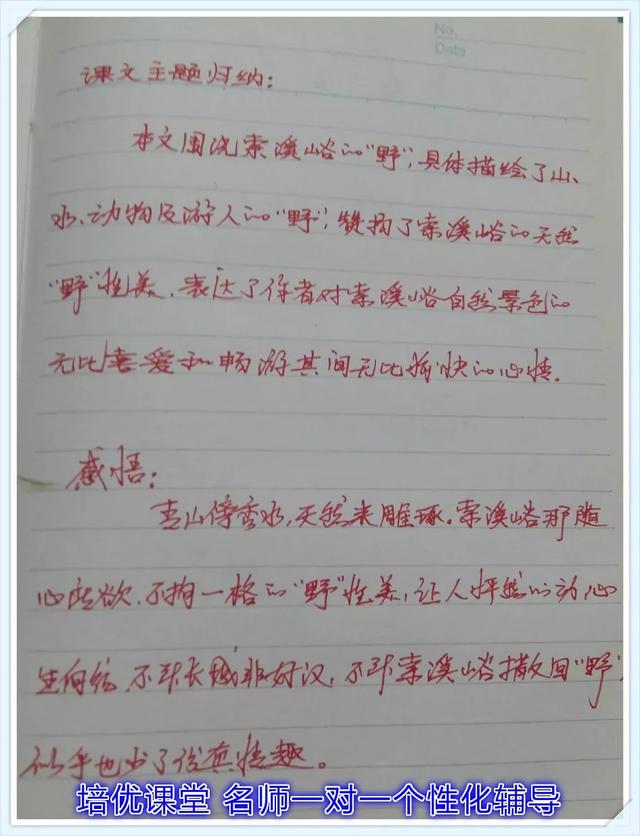 No.
Date
课文主题归纳:
本文围浇索溪峪的“野”,具体描绘了山、
水、动物及游人的“野”,赞扬了索溪峪的天然
“野”性美,表达了作者对索溪峪自然景色的
无比喜爱和畅游其间无比愉快的心情.
感悟:
青山傍秀水,天然来雕琢。索溪峪那随
心所欲,不拘一格的“野”性美,让人怦然心动,心
生向往,不到长城非好汉,不到索溪峪撒回“野”,
似乎也少了份真情趣。
培优课堂 名师一对一个性化辅导